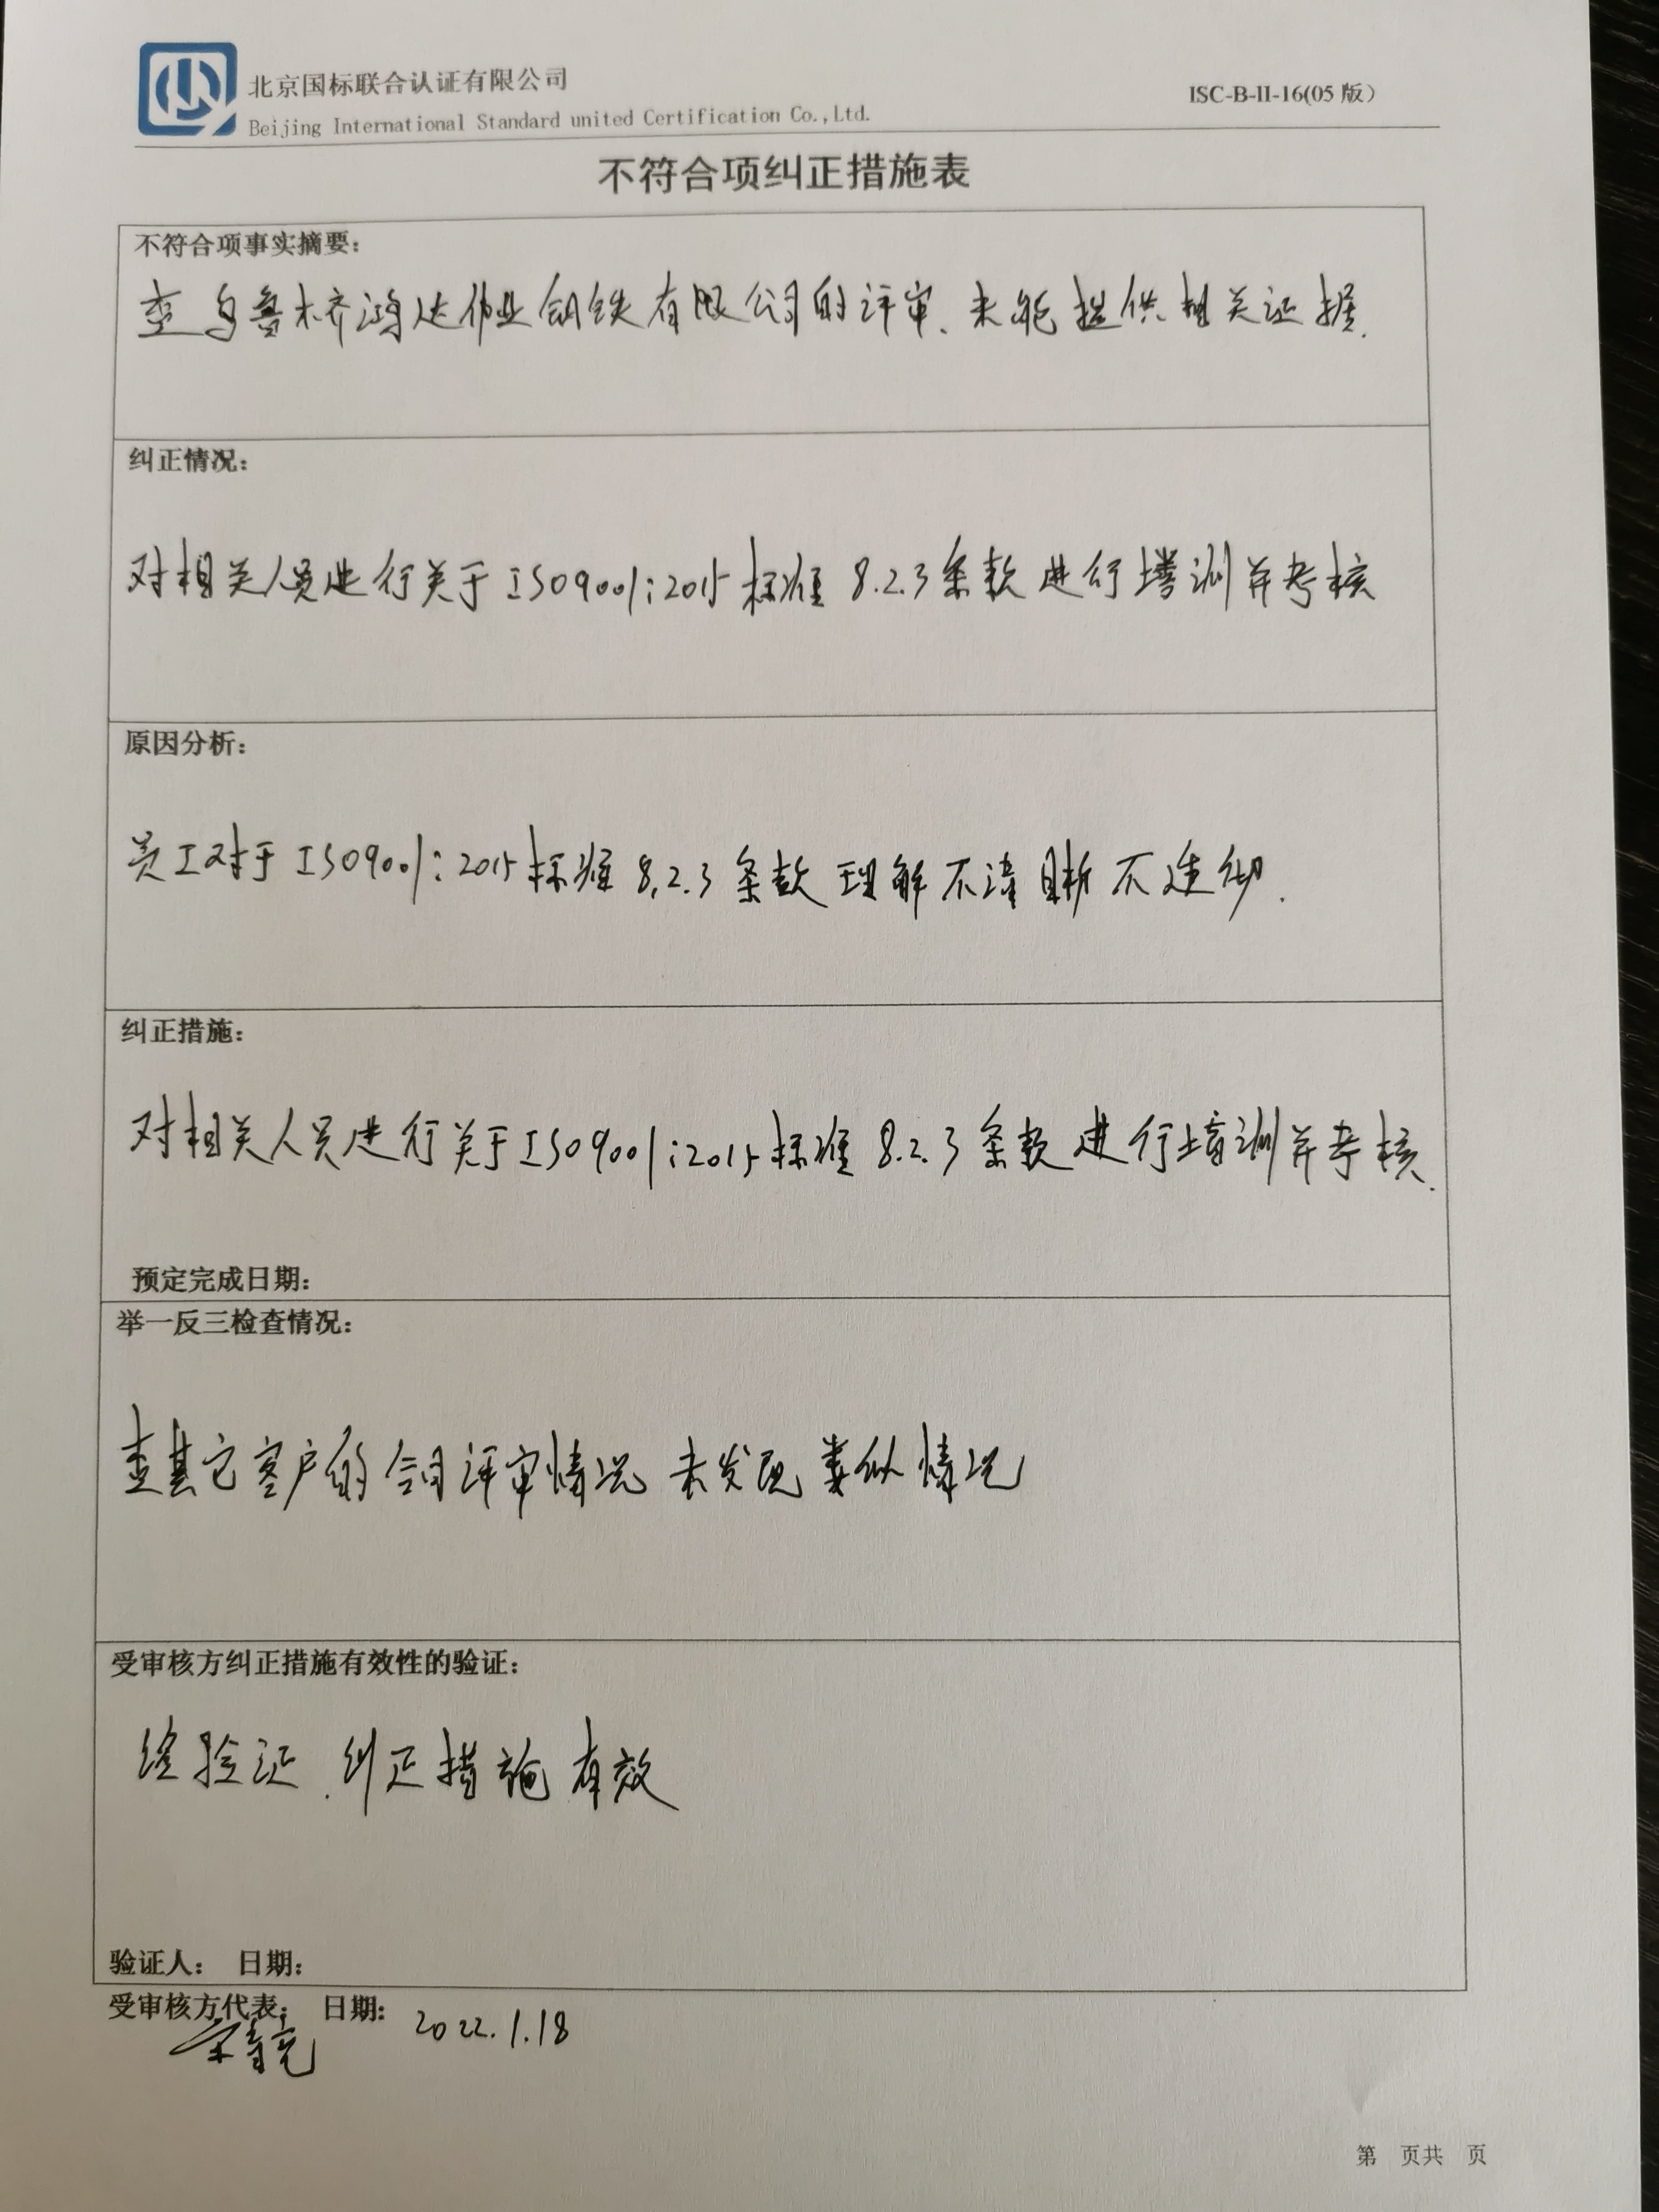 北京国标联合认证有限公司
ISC-B-II-16(05 版)
Beijing International Standard united Certification Co.,Ltd.
不符合项纠正措施表
不符合项事实摘要:
查乌鲁木齐鸿达伟业钢铁有限公司的评审、未能提供相关证据.
纠正情况:
对相关人员进行关于ISO9001:2015标准 8.2.3条款进行培训并考核
原因分析:
员工对于ISO9001:2015标准8.2.3条款理解不清晰不透彻.
纠正措施:
对相关人员进行关于ISO9001:2015标准 8.2.3 条款进行培训并考核.
预定完成日期:
举一反三检查情况:
查其它客户的合同评审情况 未发现类似情况
受审核方纠正措施有效性的验证:
经验证.纠正措施有效
验证人: 日期:
受审核方代表: 日期: 2022.1.18
第 页共 页